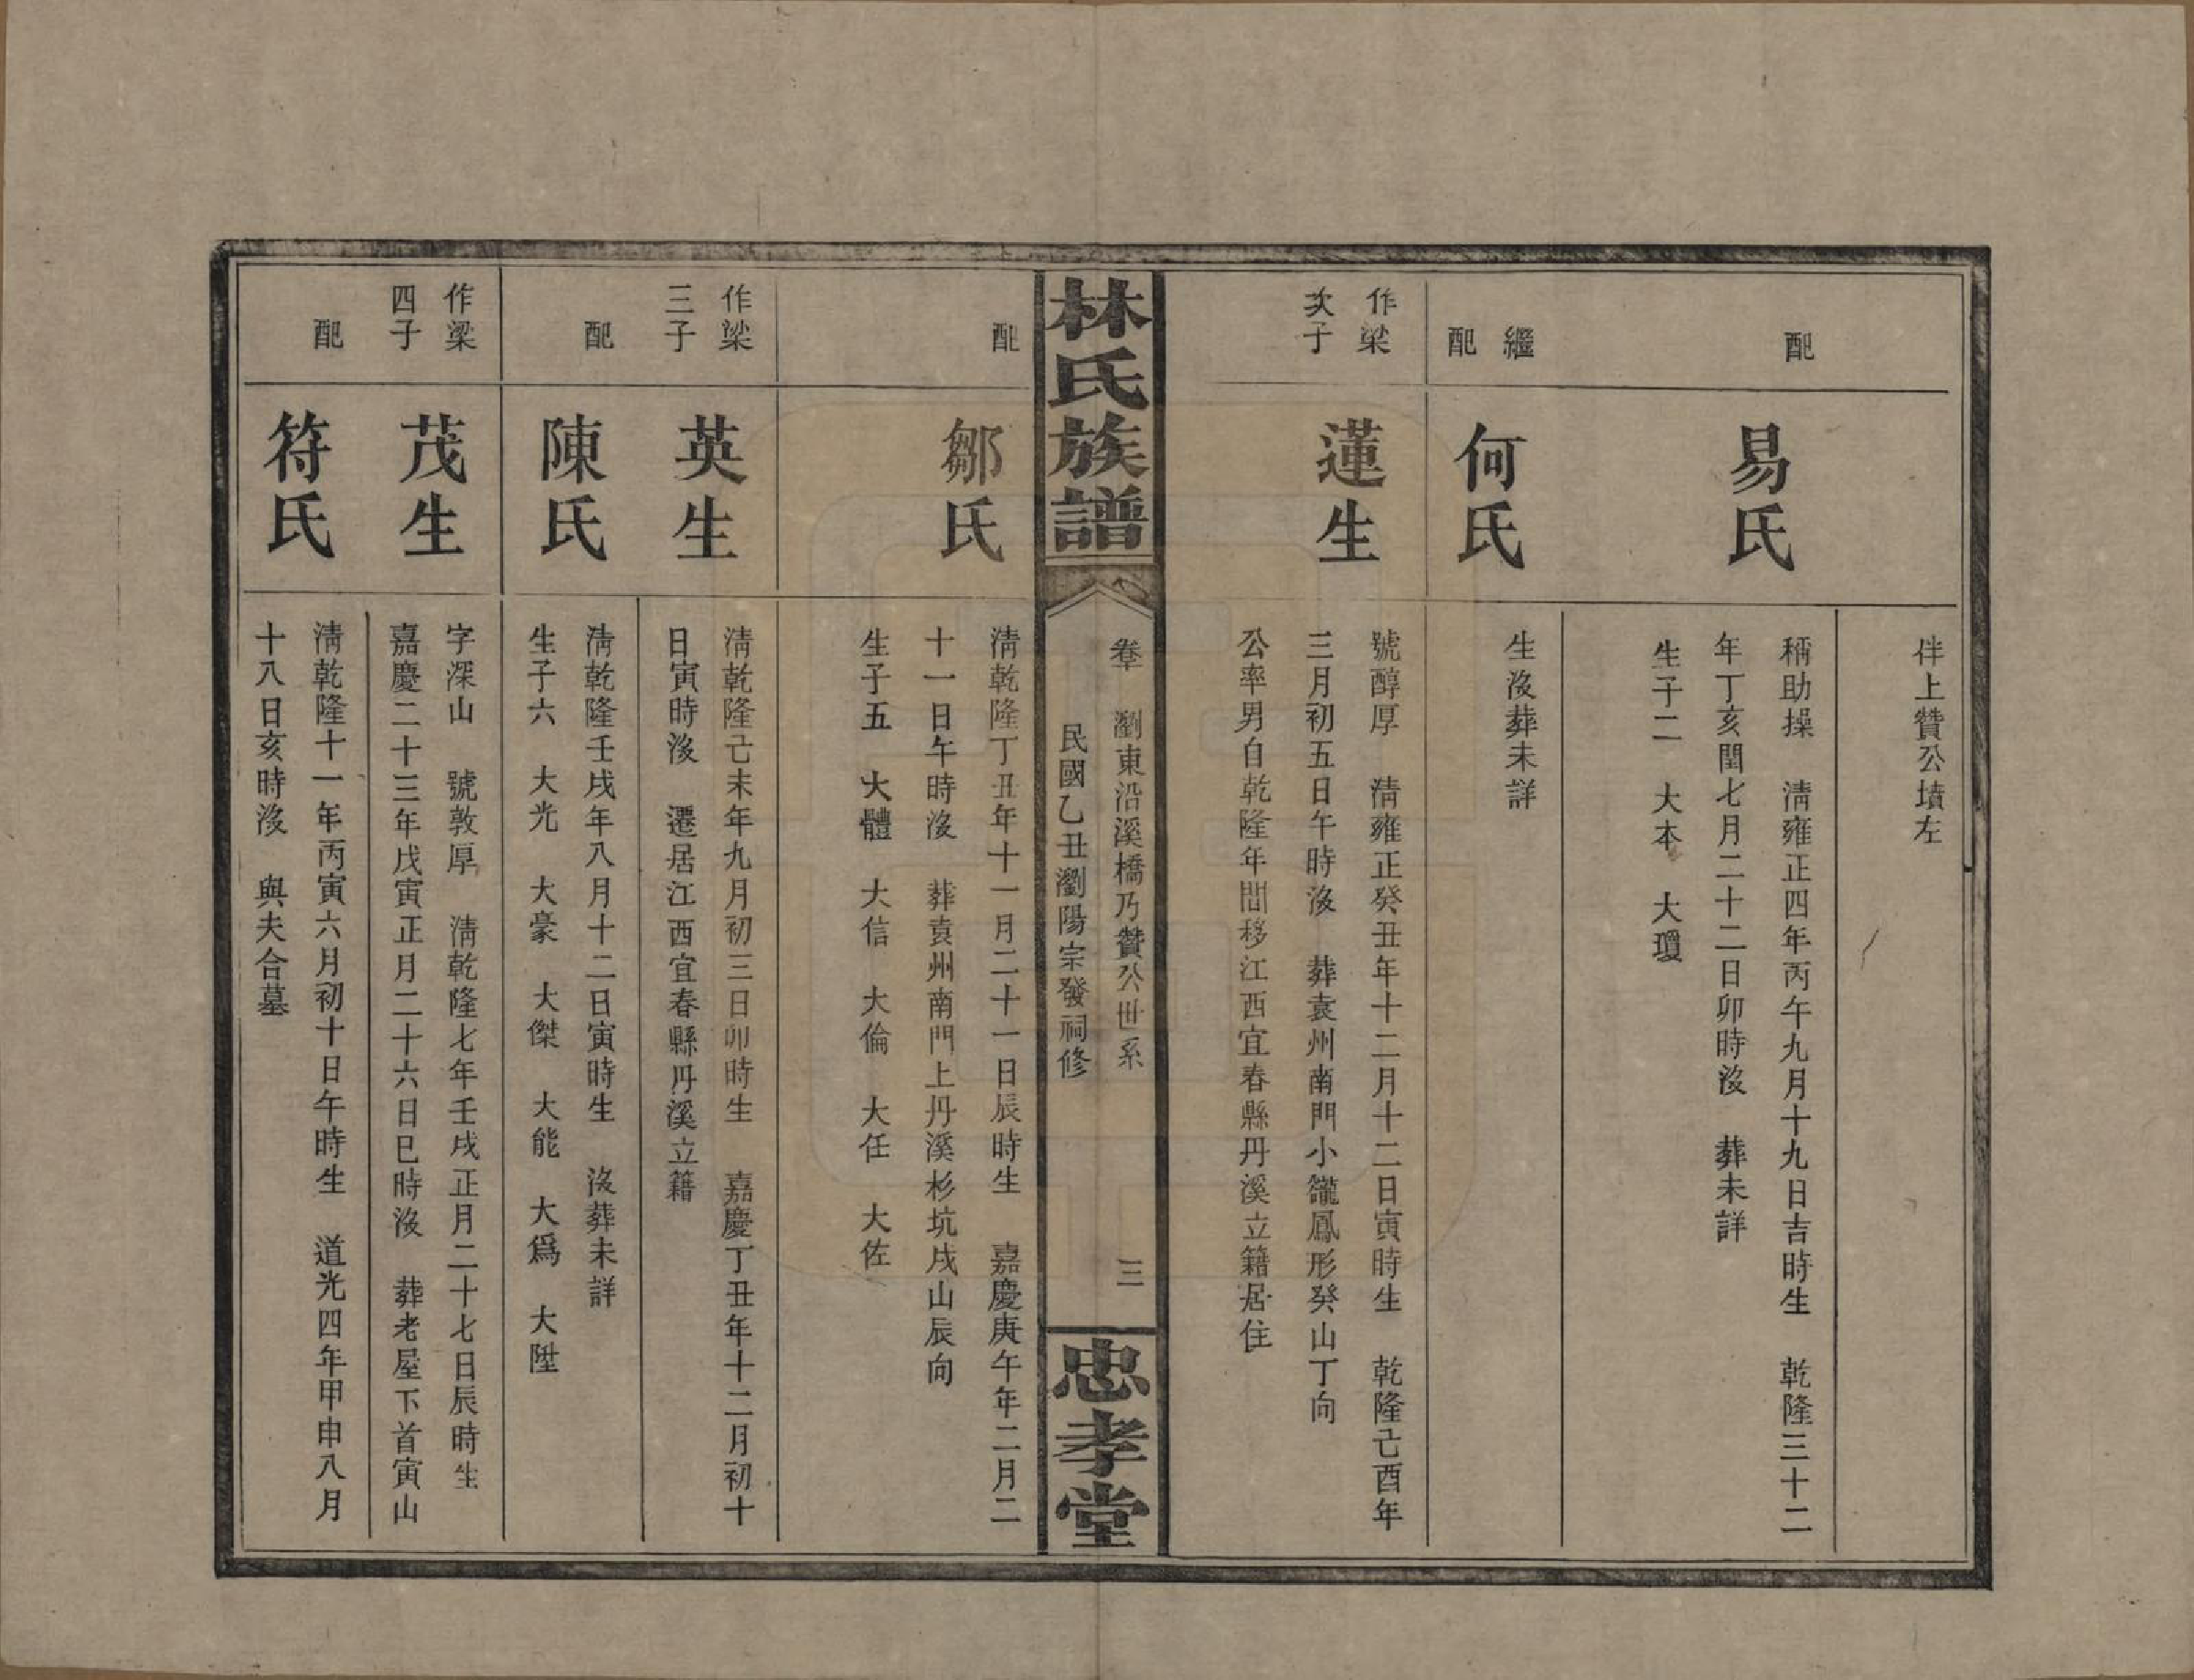 伴上贊公墳左
配
易氏
稱助操　清雍正四年丙午九月十九日吉時生　乾隆三十二
年丁亥閏七月二十二日卯時沒　葬未詳
生子二　大本　大瓊
繼
配
何氏
生沒葬未詳
作梁
次子
蓮生
號醇厚　清雍正癸丑年十二月十二日寅時生　乾隆己酉年
三月初五日午時沒　葬袁州南門小龍鳳形癸山丁向
公率男自乾隆年間移江西宜春縣丹溪立籍居住
林氏族譜
卷
瀏東沿溪橋乃贊公世系
三
民國乙丑瀏陽宗發祠修
忠孝堂
配
鄒氏
清乾隆丁丑年十一月二十一日辰時生　嘉慶庚午年二月二
十一日午時沒　葬袁州南門上丹溪杉坑戌山辰向
生子五　大體　大信　大倫　大任　大佐
作梁
三子
英生
清乾隆己未年九月初三日卯時生　嘉慶丁丑年十二月初十
日寅時沒　遷居江西宜春縣丹溪立籍
配
陳氏
清乾隆壬戌年八月十二日寅時生　沒葬未詳
生子六　大光　大豪　大傑　大能　大為　大陞
作梁
四子
茂生
字深山　號敦厚　清乾隆七年壬戌正月二十七日辰時生
嘉慶二十三年戊寅正月二十六日巳時沒　葬老屋下首寅山
配
符氏
清乾隆十一年丙寅六月初十日午時生　道光四年甲申八月
十八日亥時沒　與夫合墓